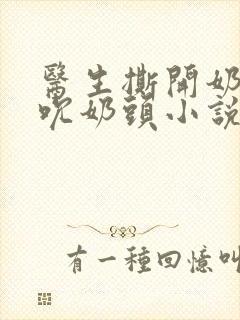 醫生撕開奶
吮奶頭小說
有一種回憶叫